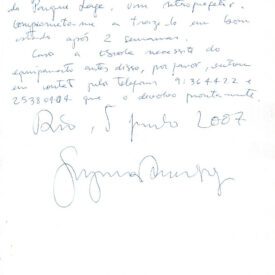 do Parque Lage, um retroprojetor.
Comprometo-me a trazê-lo em bom
estado após 2 semanas.
Caso a escola necessite do
equipamento antes disso, por favor, entrem
em contato pelo telefone 91364422 e
25380404 que o devolvo prontamente.
Rio, 5 junho 2007